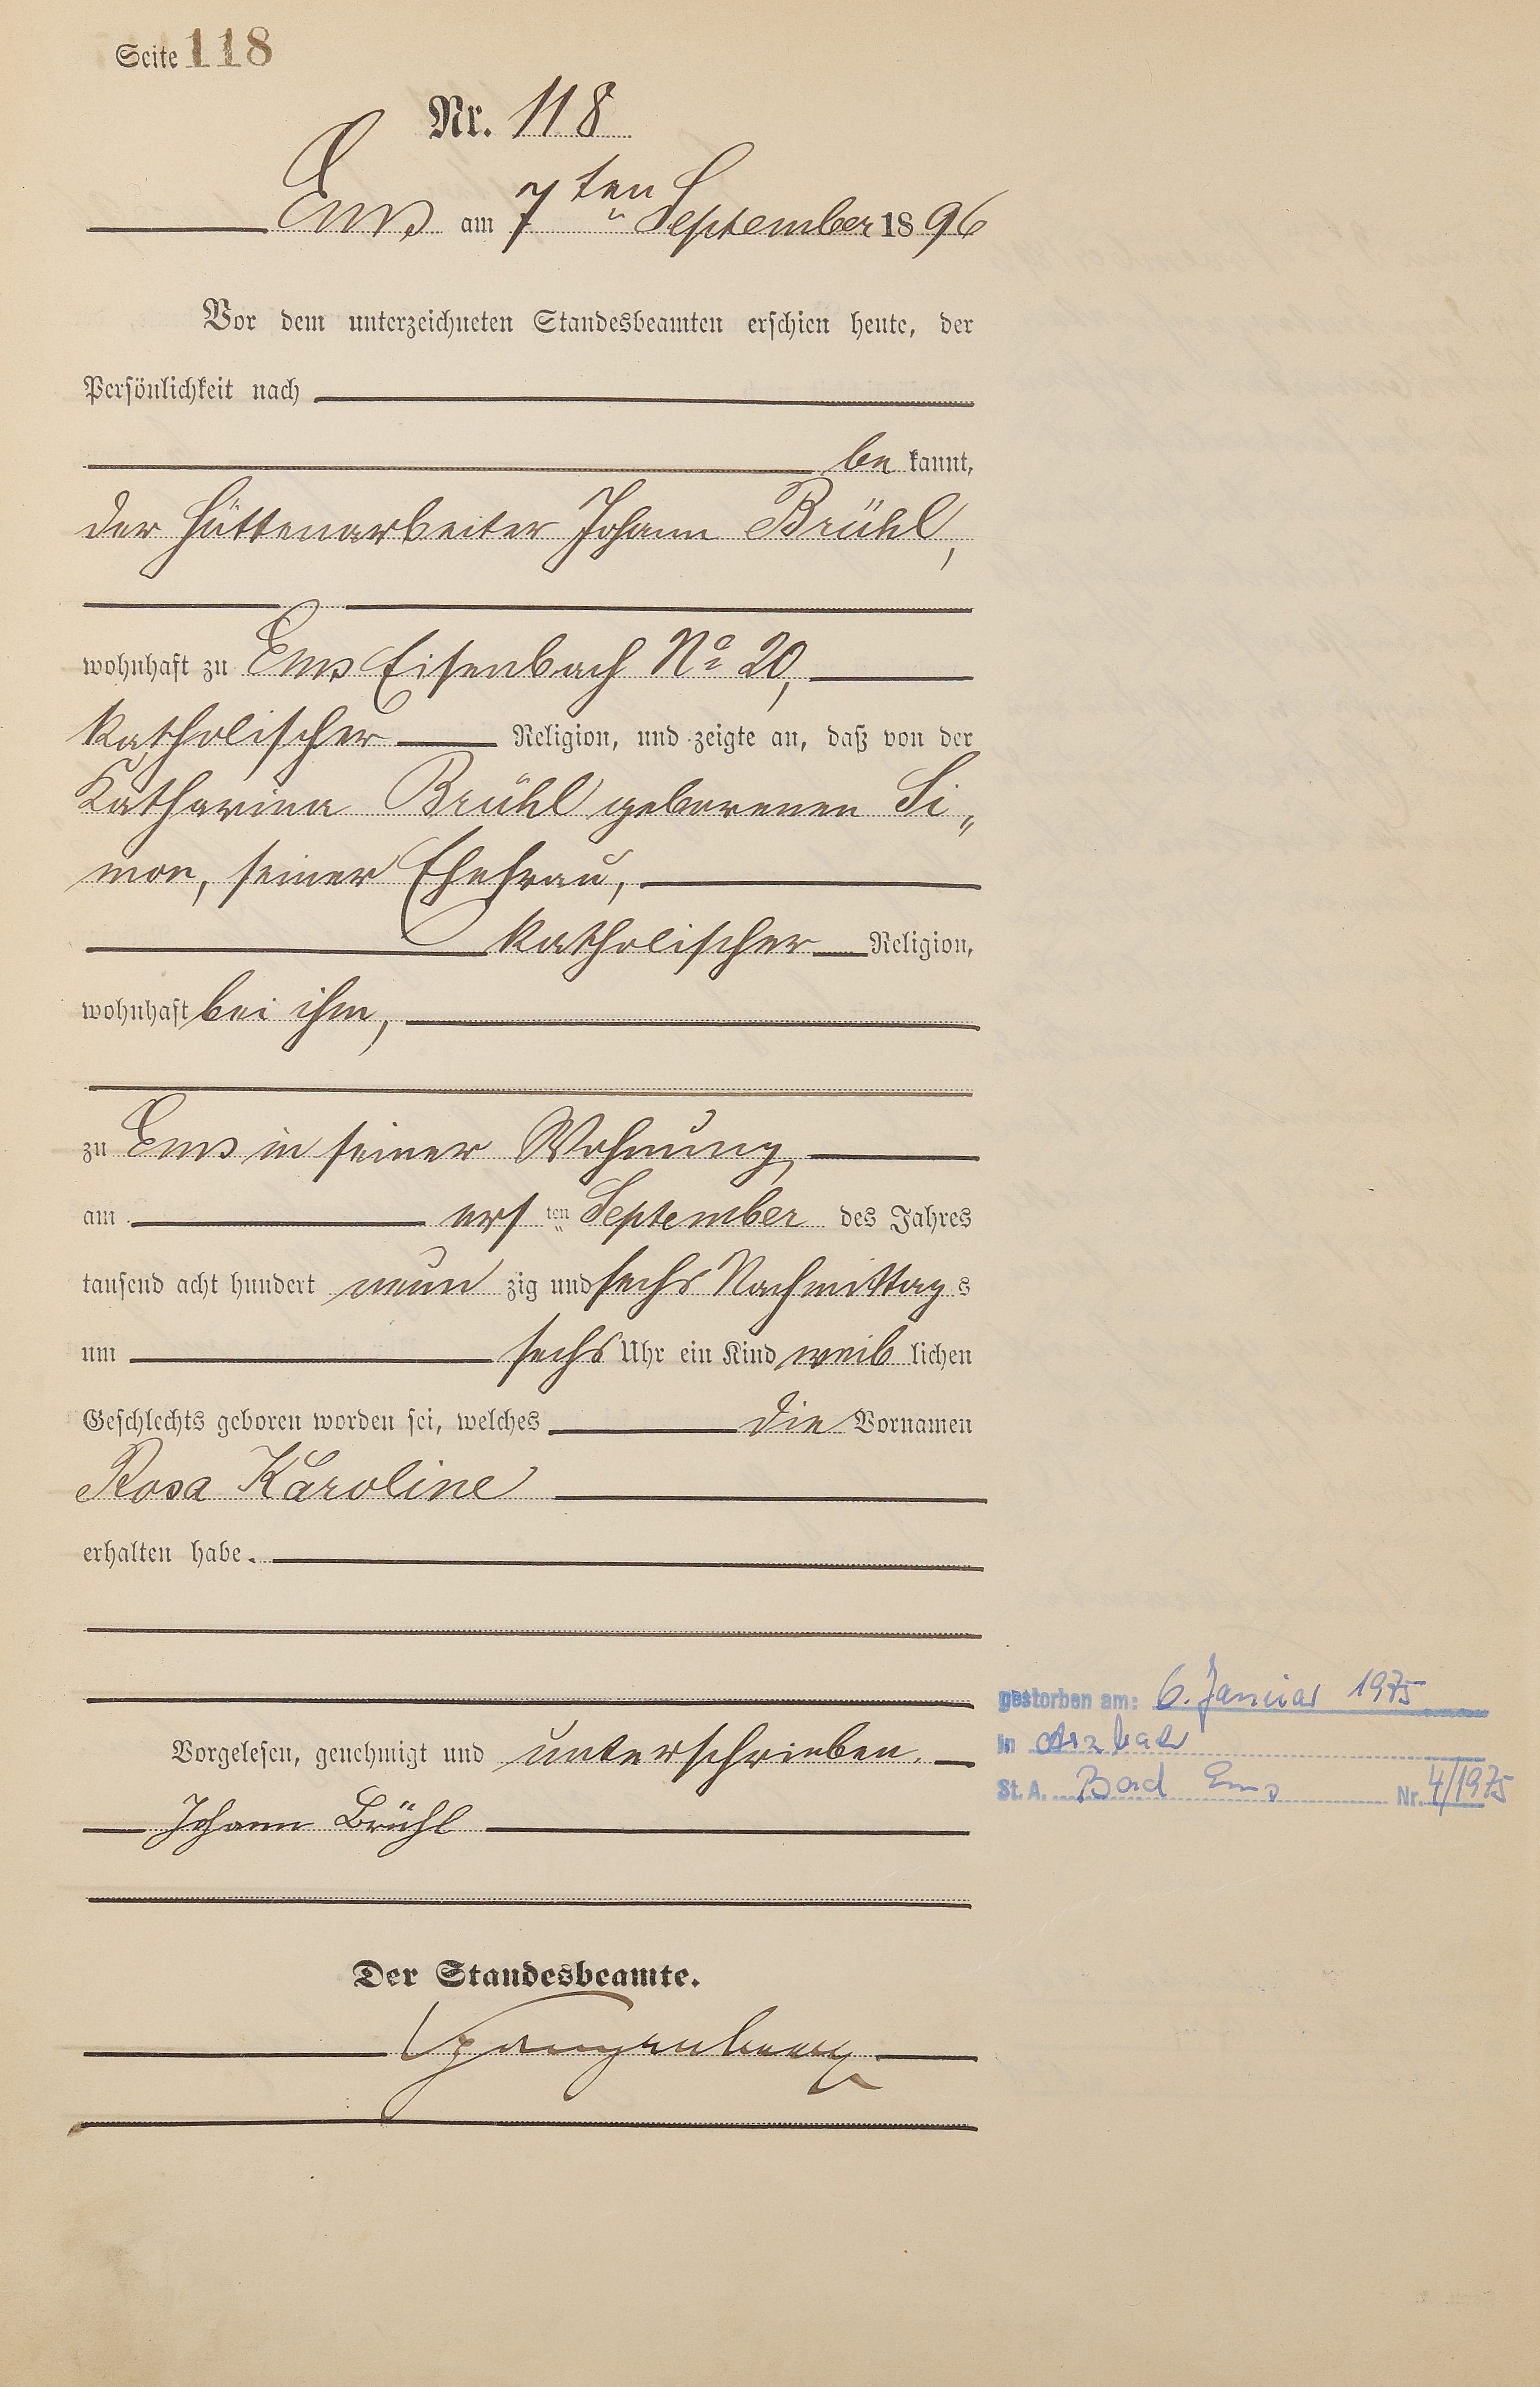 Seite 118
Nr. 118
Ems am 7ten September 1896
Vor dem unterzeichneten Standesbeamten erschien heute, der
Persönlichkeit nach
be kannt,
der Hüttenarbeiter Johann Brühl,
wohnhaft zu Ems Eisenbach No 20,
katholischer Religion, und zeigte an, daß von der
Katharina Brühl geborenen Si„
mon, seiner Ehefrau,
katholischer Religion,
wohnhaft bei ihm,
zu Ems in seiner Wohnung,
am ers ten September des Jahres
tausend acht hundert neun zig und sechs Nachmittag s
um sechs Uhr ein Kind weib lichen
Geschlechts geboren worden sei, welches die Vornamen
Rosa Karoline
erhalten habe.
gestorben am: 6. Januar 1975
in Arzbach
St. A. Bad Ems Nr. 4/1975
Vorgelesen, genehmigt und unterschrieben.
Johann Brühl
Der Standesbeamte.
Spangenberg